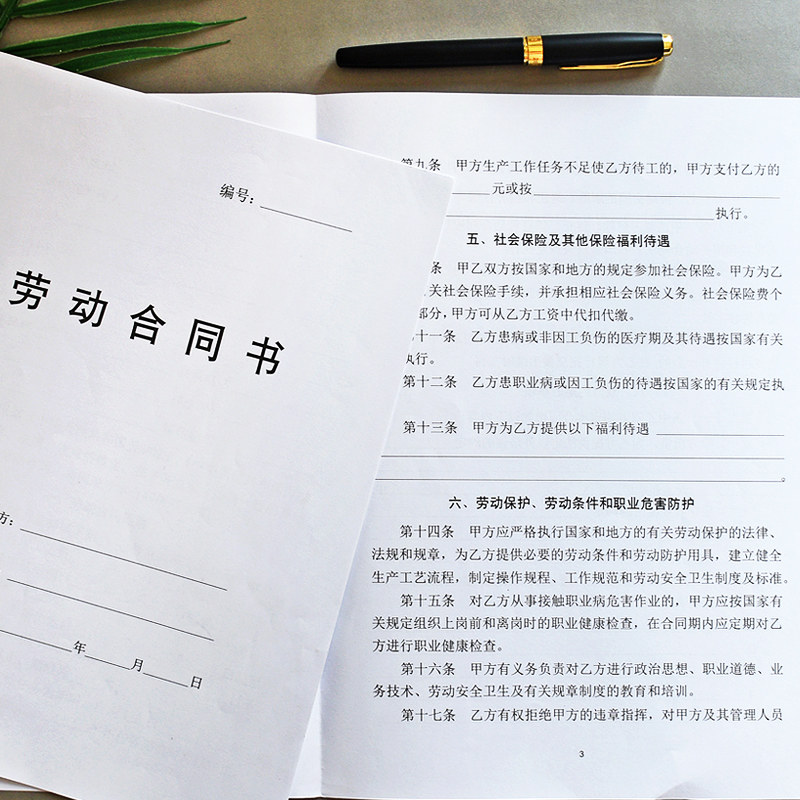 编号：
劳动合同书
方：
年 月 日
第九条 甲方生产工作任务不足使乙方待工的，甲方支付乙方的
元或按
执行。
五、社会保险及其他保险福利待遇
条 甲乙双方按国家和地方的规定参加社会保险。甲方为乙
关社会保险手续，并承担相应社会保险义务。社会保险费个
部分，甲方可从乙方工资中代扣代缴。
十一条 乙方患病或非因工负伤的医疗期及其待遇按国家有关
执行。
第十二条 乙方患职业病或因工负伤的待遇按国家的有关规定执
第十三条 甲方为乙方提供以下福利待遇
。
六、劳动保护、劳动条件和职业危害防护
第十四条 甲方应严格执行国家和地方的有关劳动保护的法律、
法规和规章，为乙方提供必要的劳动条件和劳动防护用具，建立健全
生产工艺流程，制定操作规程、工作规范和劳动安全卫生制度及标准。
第十五条 对乙方从事接触职业病危害作业的，甲方应按国家有
关规定组织上岗前和离岗时的职业健康检查，在合同期内应定期对乙
方进行职业健康检查。
第十六条 甲方有义务负责对乙方进行政治思想、职业道德、业
务技术、劳动安全卫生及有关规章制度的教育和培训。
第十七条 乙方有权拒绝甲方的违章指挥，对甲方及其管理人员
3